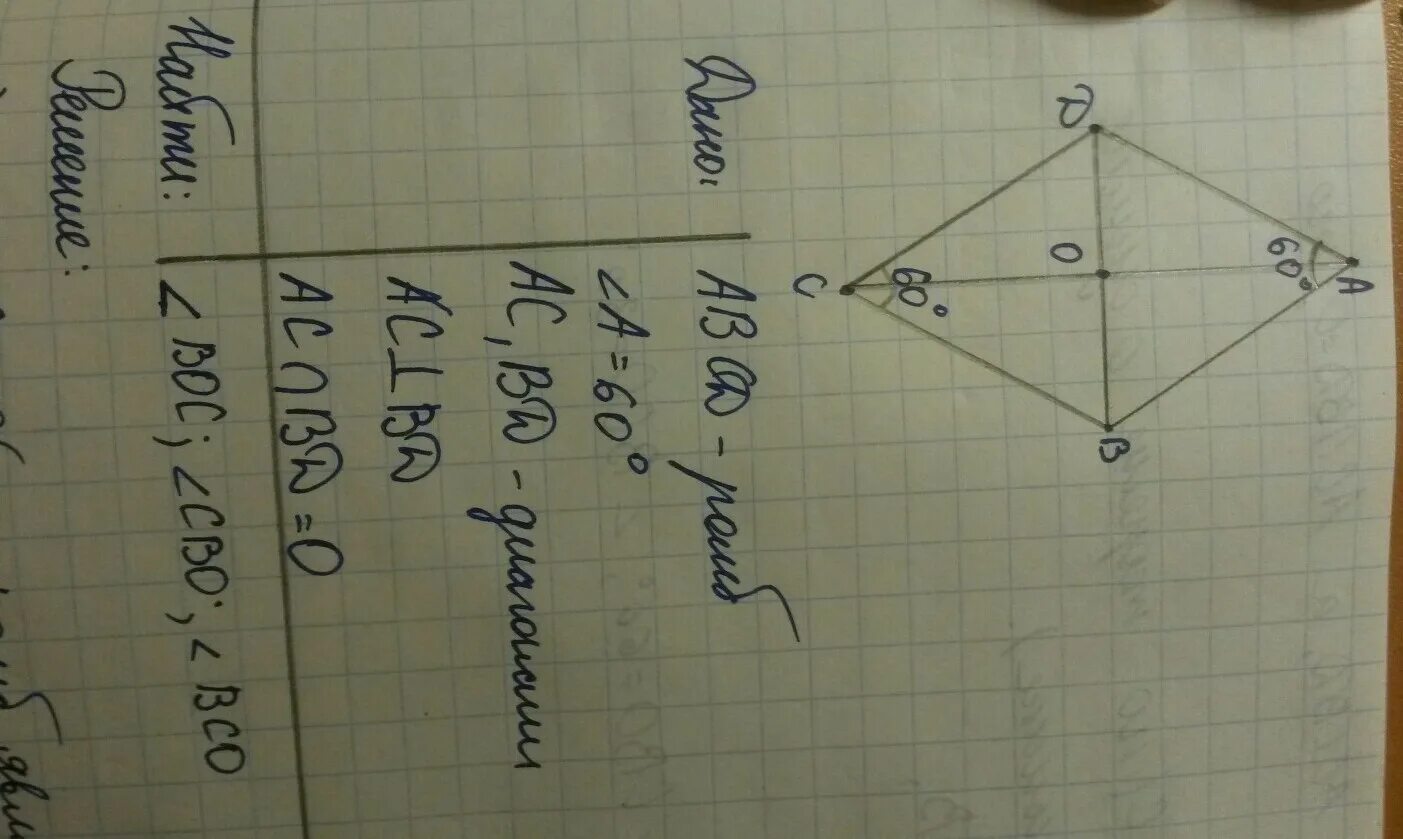 A
60°
D
O
B
60°
C
Дано:
ABCD - ромб
<A = 60°
AC, BD - диагонали
AC ⊥ BD
AC ∩ BD = O
Найти:
∠BOC; <CBO; <BCO
Решение: